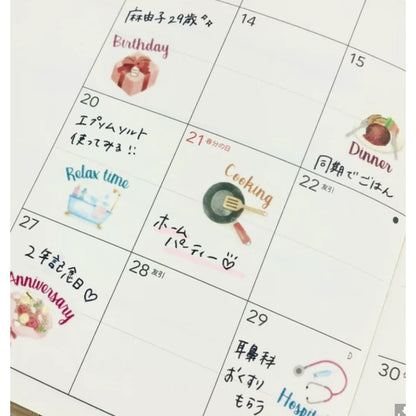 麻由子29歳
Birthday
14
15
Dinner
同期でごはん
20
エプソムソルト
使ってみる!!
Relax time
21 春分の日
Cooking
ホーム
パーティー♡
22 友引
27
2年記念日♡
Anniversary
28 友引
29
耳鼻科
おくすり
もらう
Hospi
30